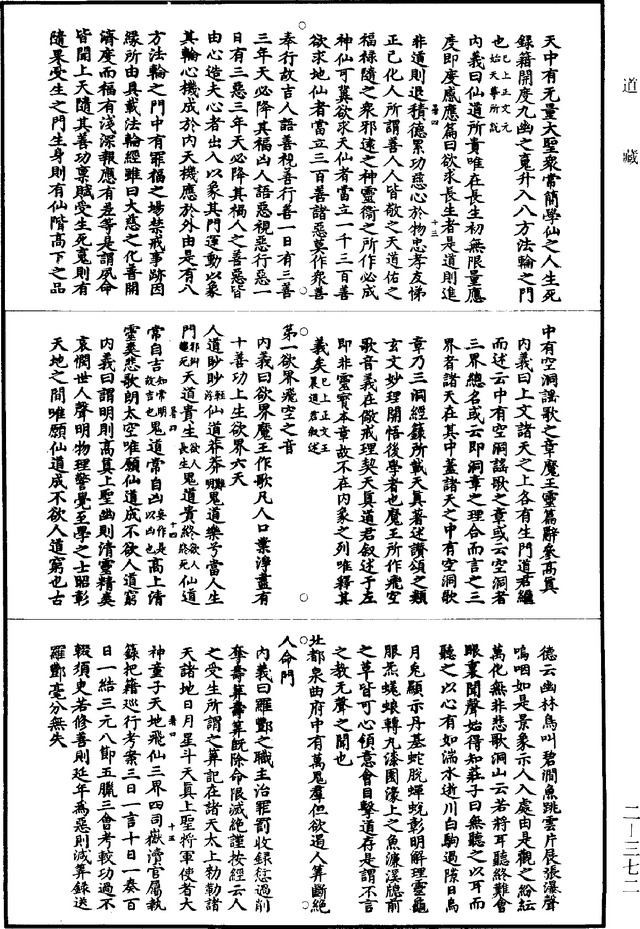 道藏
天中有无量大聖衆常簡學仙之人生死
錄籍開度九幽之䰟升入八方法輪之門
也已上正文元始天尊所説
內義曰仙道所貴唯在長生初無限量應
度即度感應篇曰欲求長生者是道則進
非道則退積德累功慈心於物忠孝友悌
正己化人所謂善人人皆敬之天道佑之
福祿隨之衆邪遠之神靈衛之所作必成
神仙可冀欲求天仙者當立一千三百善
欲求地仙者當立三百善諸惡莫作衆善
奉行故吉人語善視善行善一日有三善
三年天必降其福凶人語惡視惡行惡一
日有三惡三年天必降其禍人之善惡皆
由心造夫心者出入以象其門運動以象
其輪心機成於內天機應於外由是有八
方法輪之門中有罪福之場禁戒事跡因
緣所由具載法輪經雖曰大慈之化善開
濟度而福有淺深報應有差等是謂夙命
皆聞上天隨其善功稟賦受生死䰟則有
隨果受生之門生身則有仙階高下之品
中有空洞謡歌之章魔王靈篇辭參高真
內義曰上文諸天之上各有生門道君繼
而述云中有空洞謡歌之章或云空洞者
三界總名或云即洞章之理合而言之三
界者諸天在其中蓋諸天之中有空洞歌
章乃三洞經籙所載天真著述讃頌之類
玄文妙理開悟後學者也魔王所作飛空
歌音義在儆戒理契天真道君叙述于左
即非靈寳本章故不在內象之列唯釋其
義矣已上正文王晨道君叙述
第一欲界飛空之音
內義曰欲界魔王作歌凡人口業淨盡有
十善功上生欲界六天
人道眇眇輕浮仙道莽莽明難鬼道樂兮當人生
門邪糾纏死天道貴生欲人長生鬼道貴終欲人終死仙道
常自吉如常明故吉也鬼道常自凶妄作是以凶也高上清
靈美悲歌朗太空唯願仙道成不欲人道窮
內義曰謂明則高真上聖幽則清靈精美
哀憫世人聲明物理警覺至學之士昭彰
天地之間唯願仙道成不欲人道窮也古
德云幽林鳥叫碧澗魚跳雲片展張瀑聲
嗚咽如是景象示人入處由是觀之紛紜
萬化無非悲歌洞山云若將耳聽終難會
眼裏聞聲始得知莊子曰無聽之以耳而
聽之以心有如湍水逝川白駒過隙日烏
月兎顯示丹基蛇脫蟬蛻彰明解理靈龜
服炁蜣蜋轉丸漆園濠上之魚濂溪牕前
之草皆可心領意會目擊道存是謂不言
之教无聲之聞也
北都泉曲府中有萬鬼羣但欲遏人筭斷絶
人命門
內義曰羅酆之職主治罪罰收錄愆過削
奪壽筭壽筭既除命限滅絶謹按經云人
之受生所謂之筭記在諸天太上勒勒諸
天諸地日月星斗天真上聖將軍使者大
神童子天地飛仙三界四司嶽瀆官屬執
籙把籍巡行考案三日一言十日一奏百
日一結三元八節五臘三會考較功過不
輟須臾若修善則延年爲惡則減筭錄送
羅酆毫分無失
二—三七二